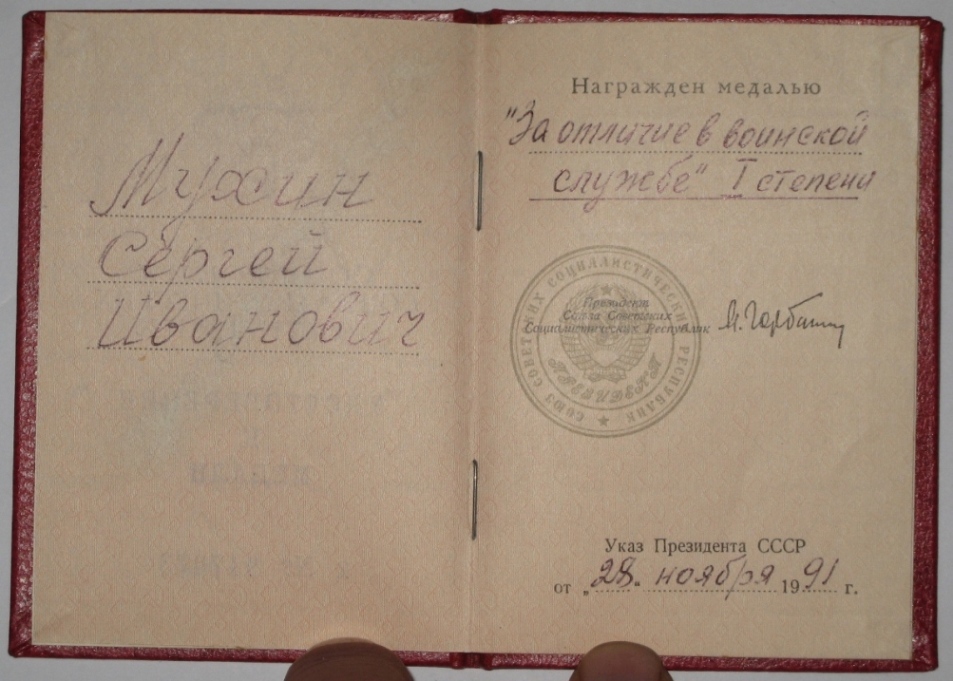 Мухин
Сергей
Иванович
Награжден медалью
"За отличие в воинской
службе" I степени
СОЮЗ СОВЕТСКИХ СОЦИАЛИСТИЧЕСКИХ РЕСПУБЛИК
Президент
Союза Советских
Социалистических Республик
М. Горбачев
ПРЕЗИДЕНТ
Указ Президента СССР
от „28" ноября 1991 г.